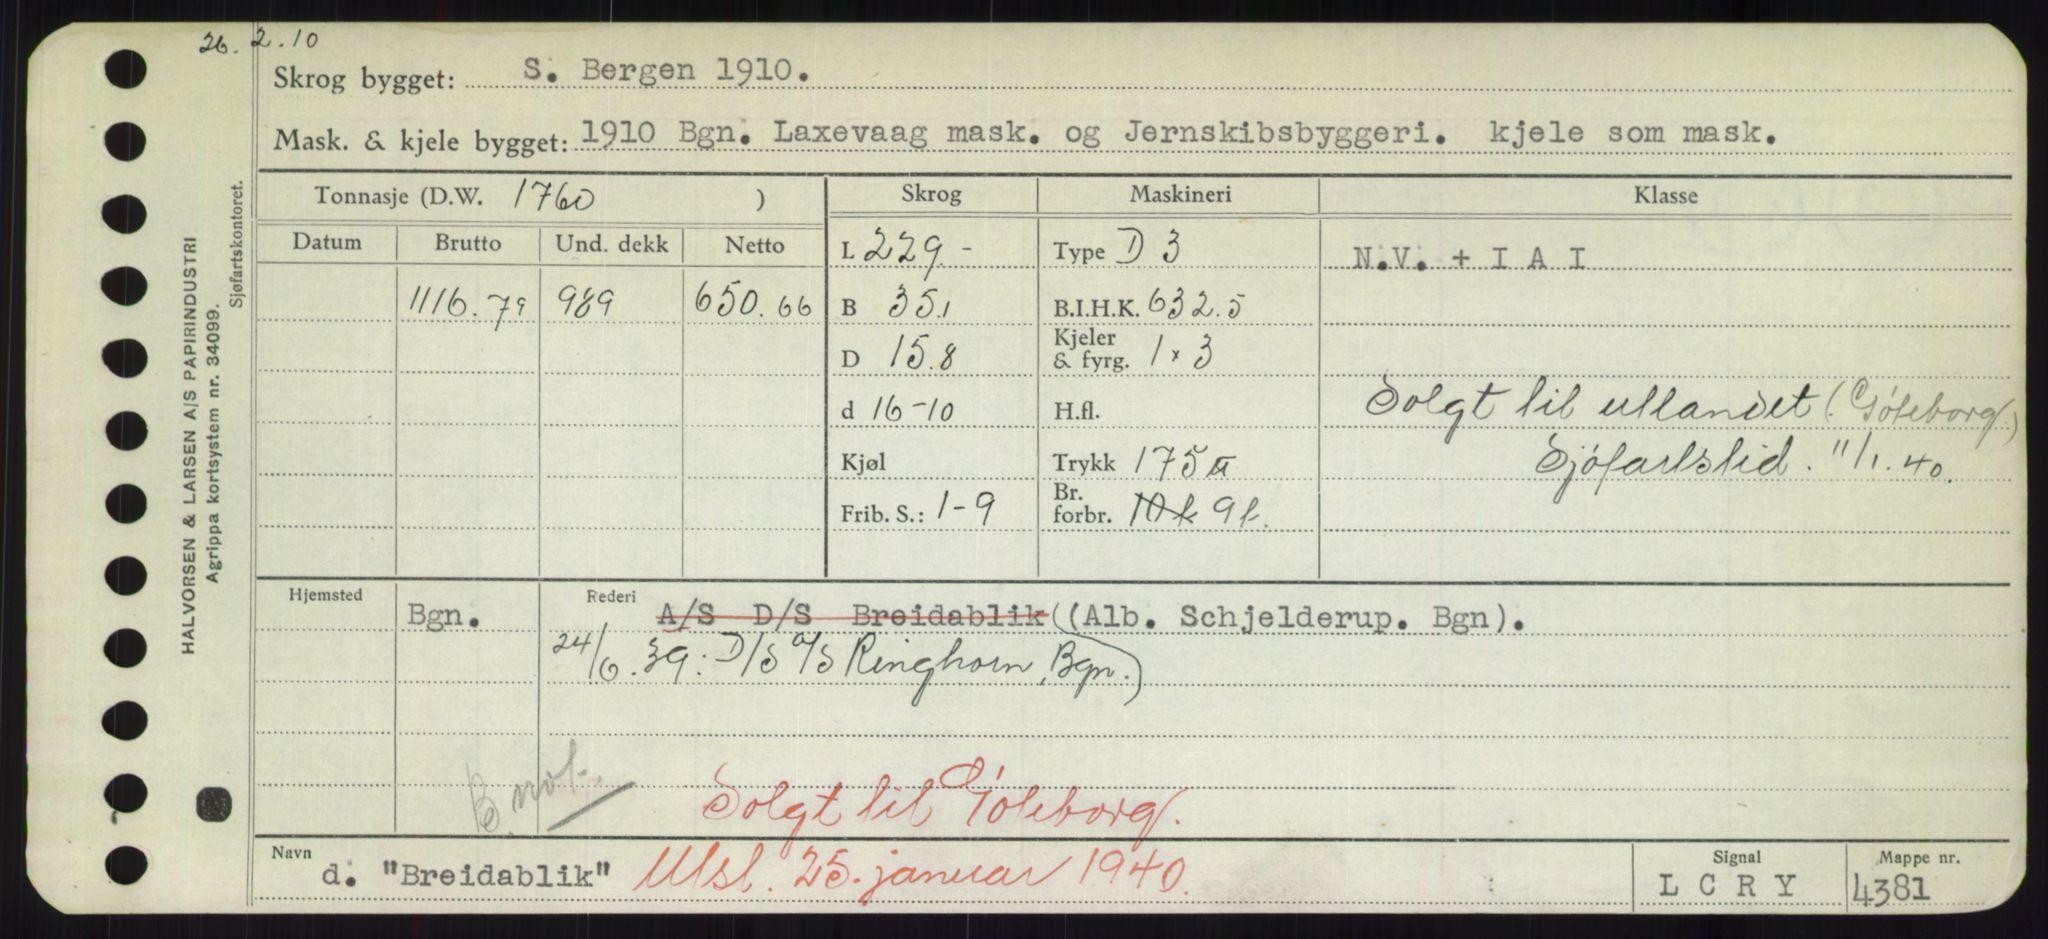 26.2.10
Skrog bygget: S. Bergen 1910.
Mask. & kjele bygget: 1910 Bgn. Laxevaag mask. og Jernskibsbyggeri. kjele som mask.
HALVORSEN & LARSEN A/S PAPIRINDUSTRI
Agrippa kortsystem nr. 34099.
Sjøfartskontoret.
Tonnasje (D.W. 1760 ) Skrog Maskineri Klasse
Datum Brutto Und. dekk Netto
L 229- Type D 3 N.V. + I A I
1116.79 989 650.66 B 35,1 B.I.H.K. 632.5
D 15.8 Kjeler & fyrg. 1 x 3
d 16-10 H.fl. Solgt til utlandet (Göteborg)
Kjøl Trykk 175 Sjöfartstid. 11/1.40.
Frib. S.: 1-9 Br. forbr. 10 t 9 t.
Hjemsted Bgn. Rederi A/S D/S Breidablik ((Alb. Schjelderup. Bgn).
24/6.39. D/S a/S Ringhorn, Bgn.)
B. not.
Solgt til Göteborg.
Navn d. "Breidablik" Utsl. 25. januar 1940. Signal L C R Y Mappe nr. 4381